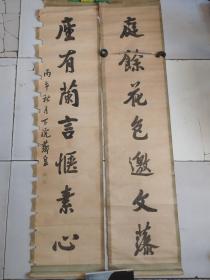 庭餘花色邀文藻
座有蘭言惬素心
丙午秋月下浣